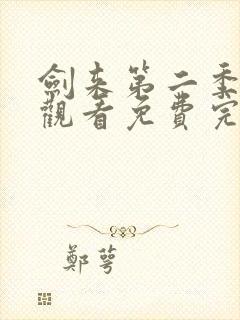 劍来第二季
觀看免費完
鄭萼